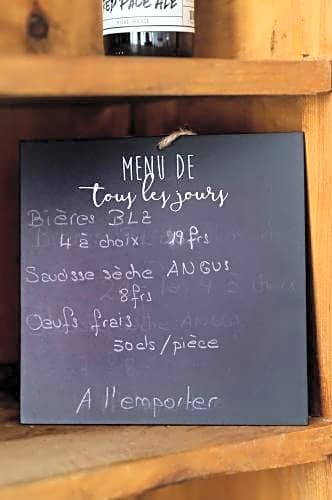 RED PALE ALE
MENU DE
tous les jours
Bières BLZ
4 à choix 19frs
Saucisse sèche ANGUS
8frs
Oeufs frais
50cts/pièce
A l'emporter